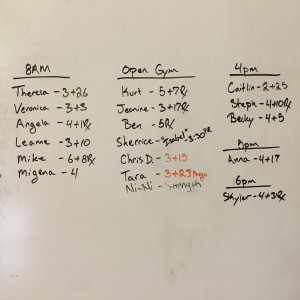 8AM
Theresa - 3+26
Veronica - 3+3
Angela - 4+1Rx
Leanne - 3+10
Mike - 6+8Rx
Migena - 4
Open Gym
Kurt - 5+7Rx
Jeanine - 3+17Rx
Ben - 5Rx
Sherrice - "Isabel" 3:30 PR
Chris D. - 3+15
Tara - 3+23
Ni-Ni - Strength
4pm
Caitlin - 2+25
Steph - 4+10Rx
Becky - 4+5
5pm
Anna - 4+17
6pm
Skyler - 4+3Rx